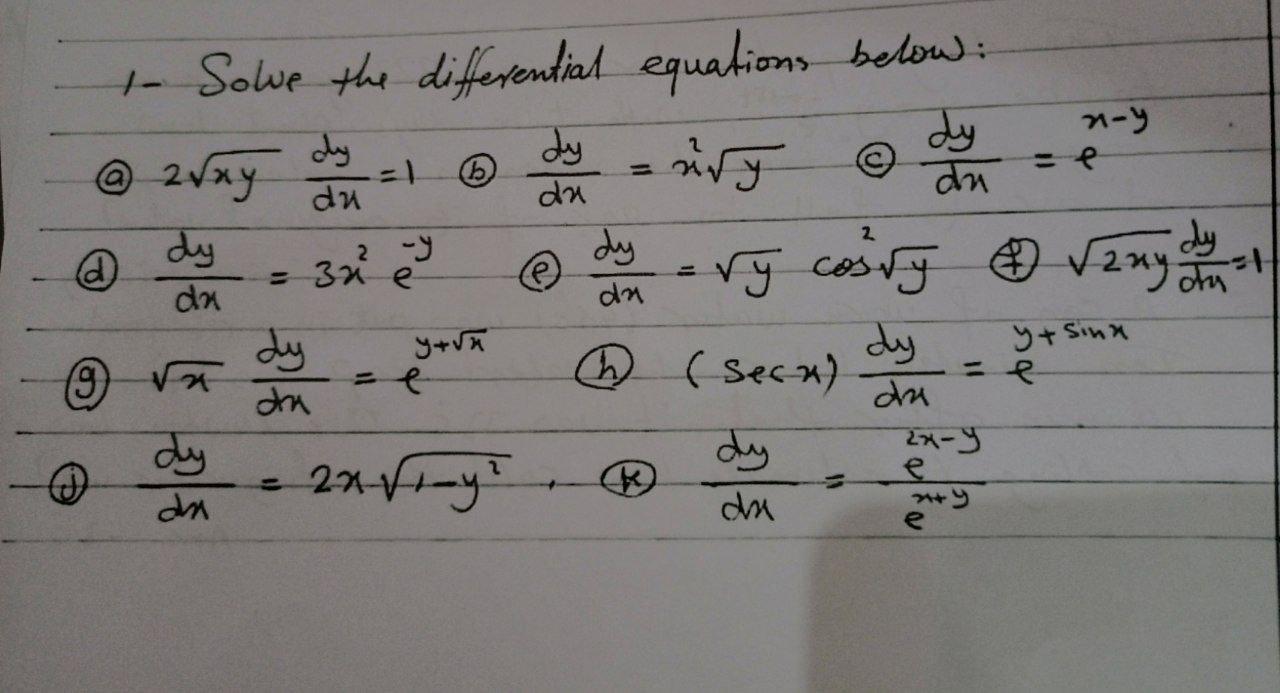 1- Solve the differential equations below:
ⓐ 2√(xy) dy/dx = 1 ⓑ dy/dx = x²√y ⓒ dy/dx = e^(x-y)
ⓓ dy/dx = 3x² e^(-y) ⓔ dy/dx = √y cos²√y ⓕ √(2xy) dy/dx = 1
ⓖ √x dy/dx = e^(y+√x) ⓗ (sec x) dy/dx = e^(y+sin x)
ⓙ dy/dx = 2x √(1-y²) . ⓚ dy/dx = e^(2x-y)/e^(x+y)